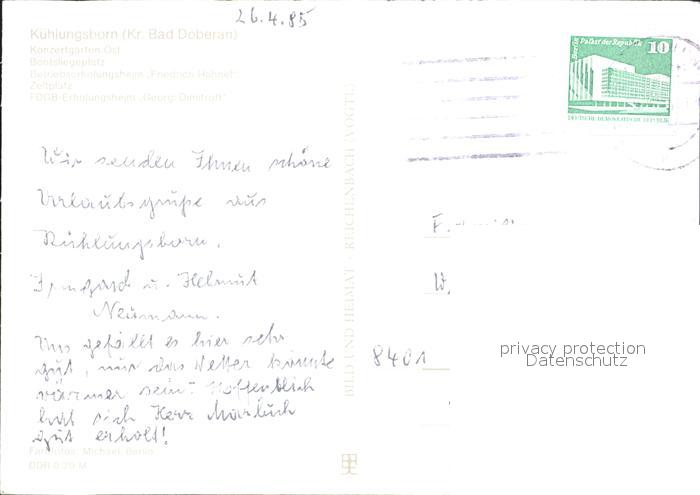 26.4.85
Kühlungsborn (Kr. Bad Doberan)
Konzertgarten Ost
Bootsliegeplatz
Betriebserholungsheim „Friedrich Hähnel“
Zeltplatz
FDGB-Erholungsheim „Georgi Dimitroff“
Berlin Palast der Republik 10
DEUTSCHE DEMOKRATISCHE REPUBLIK
Wir senden Ihnen schöne
Urlaubsgrüße aus
Kühlungsborn.
Irmgard u. Helmut
Neumann.
Uns gefällt es hier sehr
gut, nur das Wetter könnte
wärmer sein. Hoffentlich
hat sich Herr
gut erholt!
Farbfotos: Michael, Berlin
DDR 0,20 M
BILD UND HEIMAT · REICHENBACH (VOGTL)
F.
W.
8401
privacy protection
Datenschutz